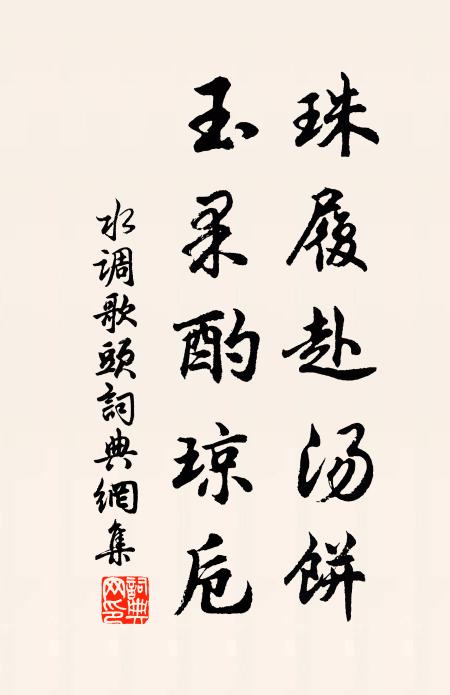 珠履赴汤餅
玉果酌琼卮
水调歌頭詞典網集
詞典网印